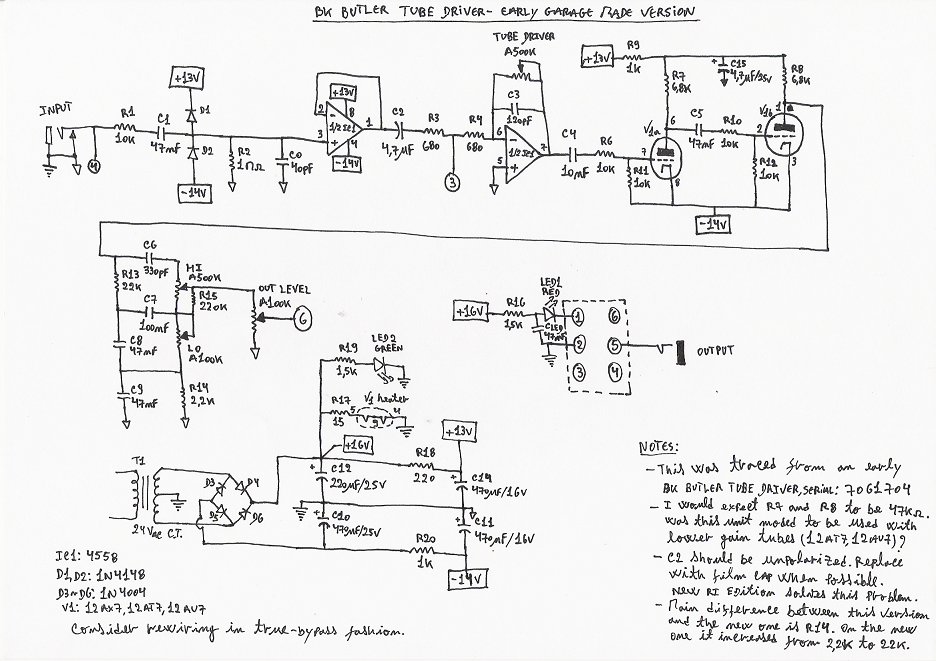 BK BUTLER TUBE DRIVER- EARLY GARAGE MADE VERSION
INPUT
4
R1
10K
C1
47mF
+13V
D1
D2
-14V
R2
1MΩ
C0
40pF
2
3
+13V
8
1/2 IC1
4
-14V
1
C2
4,7µF
R3
680
3
R4
680
TUBE DRIVER
A500K
C3
120pF
6
5
1/2 IC1
7
C4
10mF
R6
10K
R11
10K
+13V
R9
1K
R7
6,8K
V1a
7
6
8
C5
47mF
R10
10K
R12
10K
C15
4,7µF/25V
R8
6,8K
V1b
1
2
3
-14V
C6
330pF
R13
22K
HI
A500K
R15
220K
C7
100mF
C8
47mF
LO
A100K
C9
47mF
R14
2,2K
OUT LEVEL
A100K
6
+16V
R16
1,5K
LED1
RED
CLED
47mF
1
2
3
6
5
4
OUTPUT
R19
1,5K
LED2
GREEN
R17
15
V1 heater
5
9
4
+16V
T1
24Vac C.T.
D3
D4
D5
D6
C12
220µF/25V
C10
470µF/25V
R18
220
+13V
C14
470µF/16V
C11
470µF/16V
R20
1K
-14V
IC1: 4558
D1,D2: 1N4148
D3~D6: 1N4004
V1: 12AX7,12AT7,12AU7
Consider rewiring in true-bypass fashion.
NOTES:
- This was traced from an early
BK BUTLER TUBE DRIVER, SERIAL: 7061704
- I would expect R7 and R8 to be 47KΩ.
was this unit moded to be used with
lower gain tubes (12AT7,12AU7)?
- C2 should be unpolarized. Replace
with film cap when possible.
New RI Edition solves this problem.
- Main difference between this version
and the new one is R14. On the new
one it increases from 2,2K to 22K.